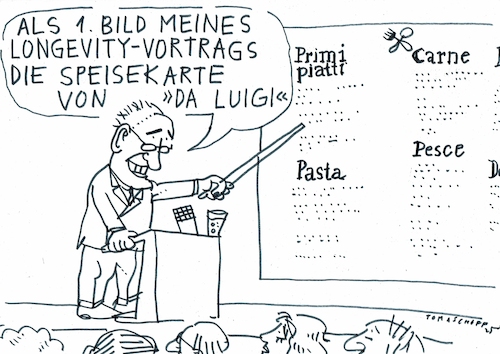 ALS 1. BILD MEINES
LONGEVITY-VORTRAGS
DIE SPEISEKARTE
VON »DA LUIGI«
Primi
piatti
Carne
Pasta
Pesce